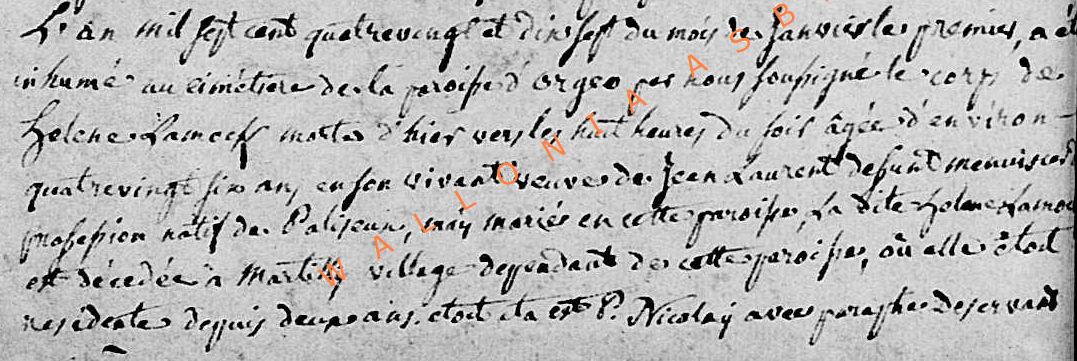 L'an mil sept cent quatrevingt et dix sept du mois de Janvier le premier, a été
inhumé au cimétiere de la paroisse d'orgeo par nous soussigné le corps de
Helene Lamock morte d'hier vers les huit heures du soir âgée d'environ
quatrevingt six ans en son vivant veuve de Jean Laurent defunt menuisier
profession natif de Paliseux, mais mariés en cette paroisse, La dite Helene Lamock
est décedée à Martilly village dependant de cette paroisse, où elle étoit
residente depuis deux ans. étoit P. Nicolay avec paraphe Deservant
WALLONIA ASB